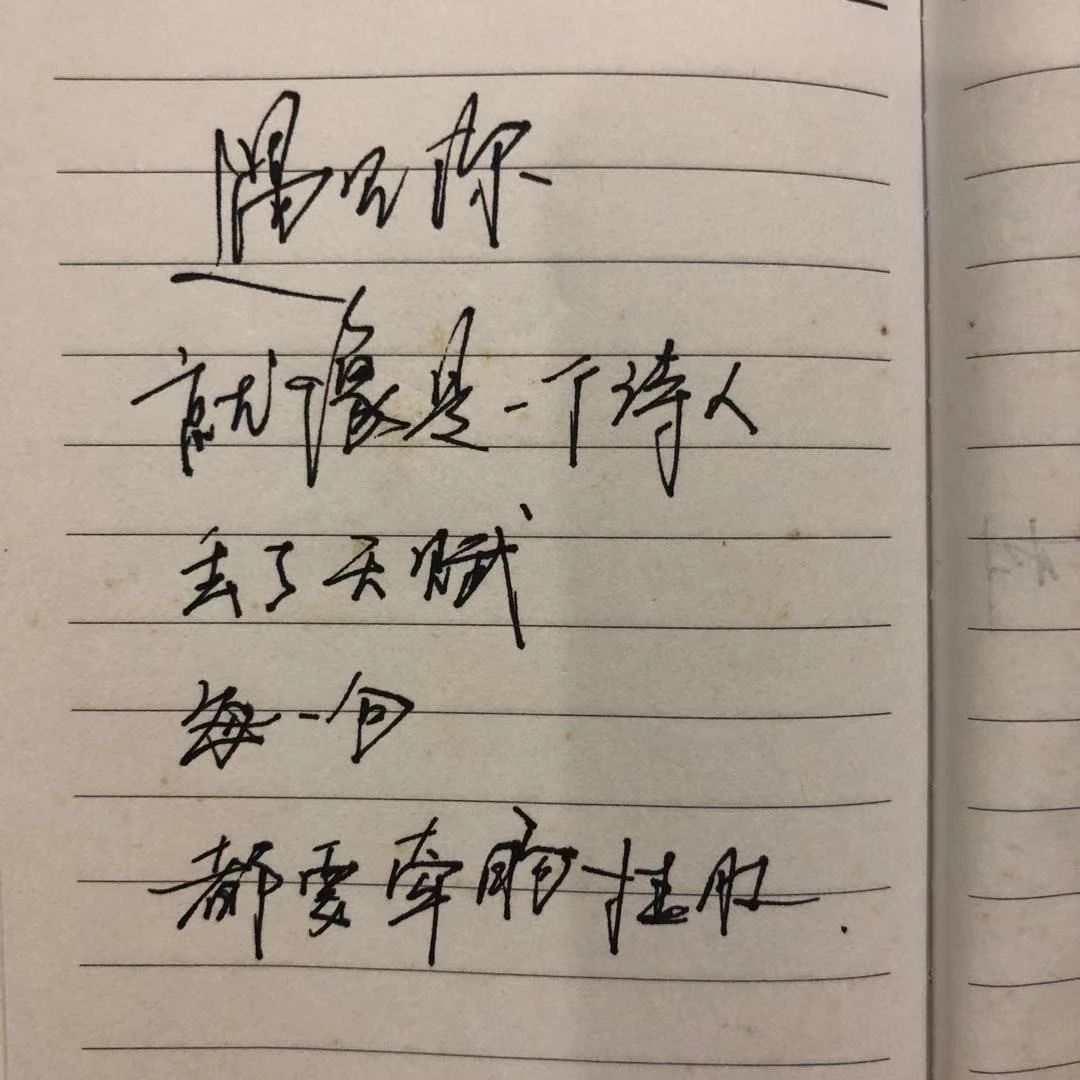 遇见你
就像是一个诗人
丢了天赋
每一句
都要牵肠挂肚.